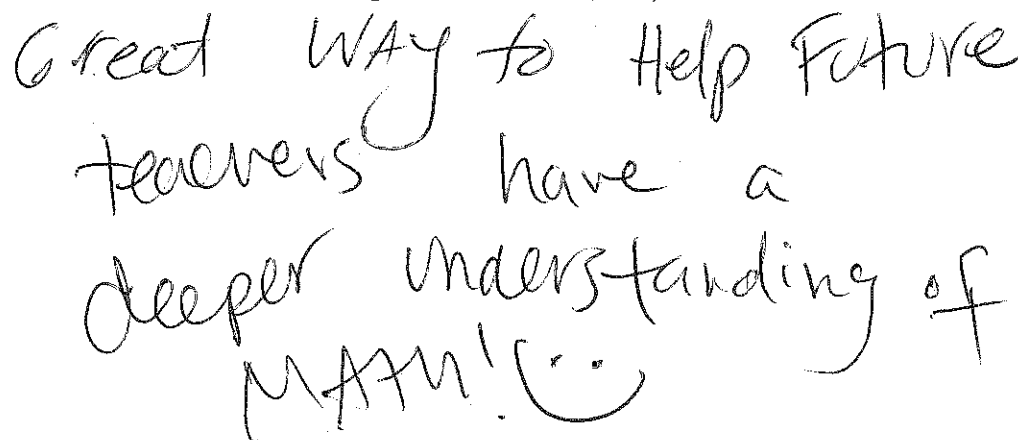 Great WAy to Help Future
teachers have a
deeper understanding of
MATH! :)